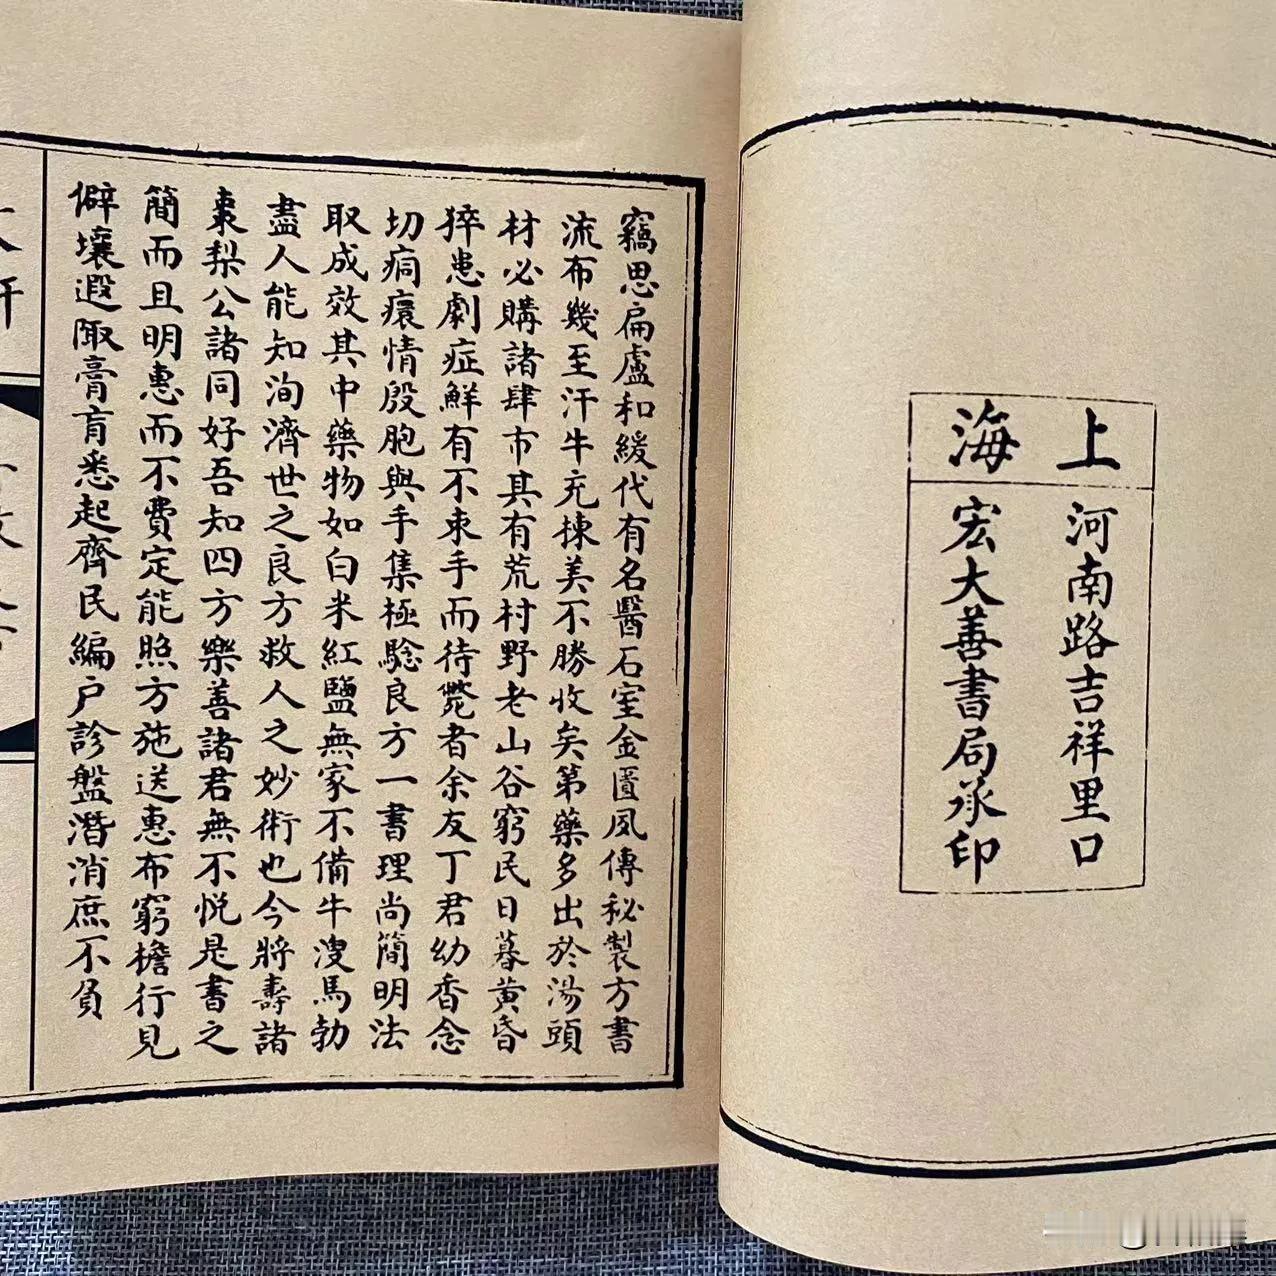 上海
河南路吉祥里口
宏大善書局承印
竊思扁盧和緩代有名醫石室金匱夙傳秘製方書
流布幾至汗牛充棟美不勝收矣第藥多出於湯頭
材必購諸肆市其有荒村野老山谷窮民日暮黃昏
猝患劇症鮮有不束手而待斃者余友丁君幼香念
切痌瘝情殷胞與手集極騐良方一書理尚簡明法
取成效其中藥物如白米紅鹽無家不備牛溲馬勃
盡人能知洵濟世之良方救人之妙術也今將壽諸
棗梨公諸同好吾知四方樂善諸君無不悅是書之
簡而且明惠而不費定能照方施送惠布窮檐行見
僻壤遐陬膏肓悉起齊民編户診盤潛消庶不負